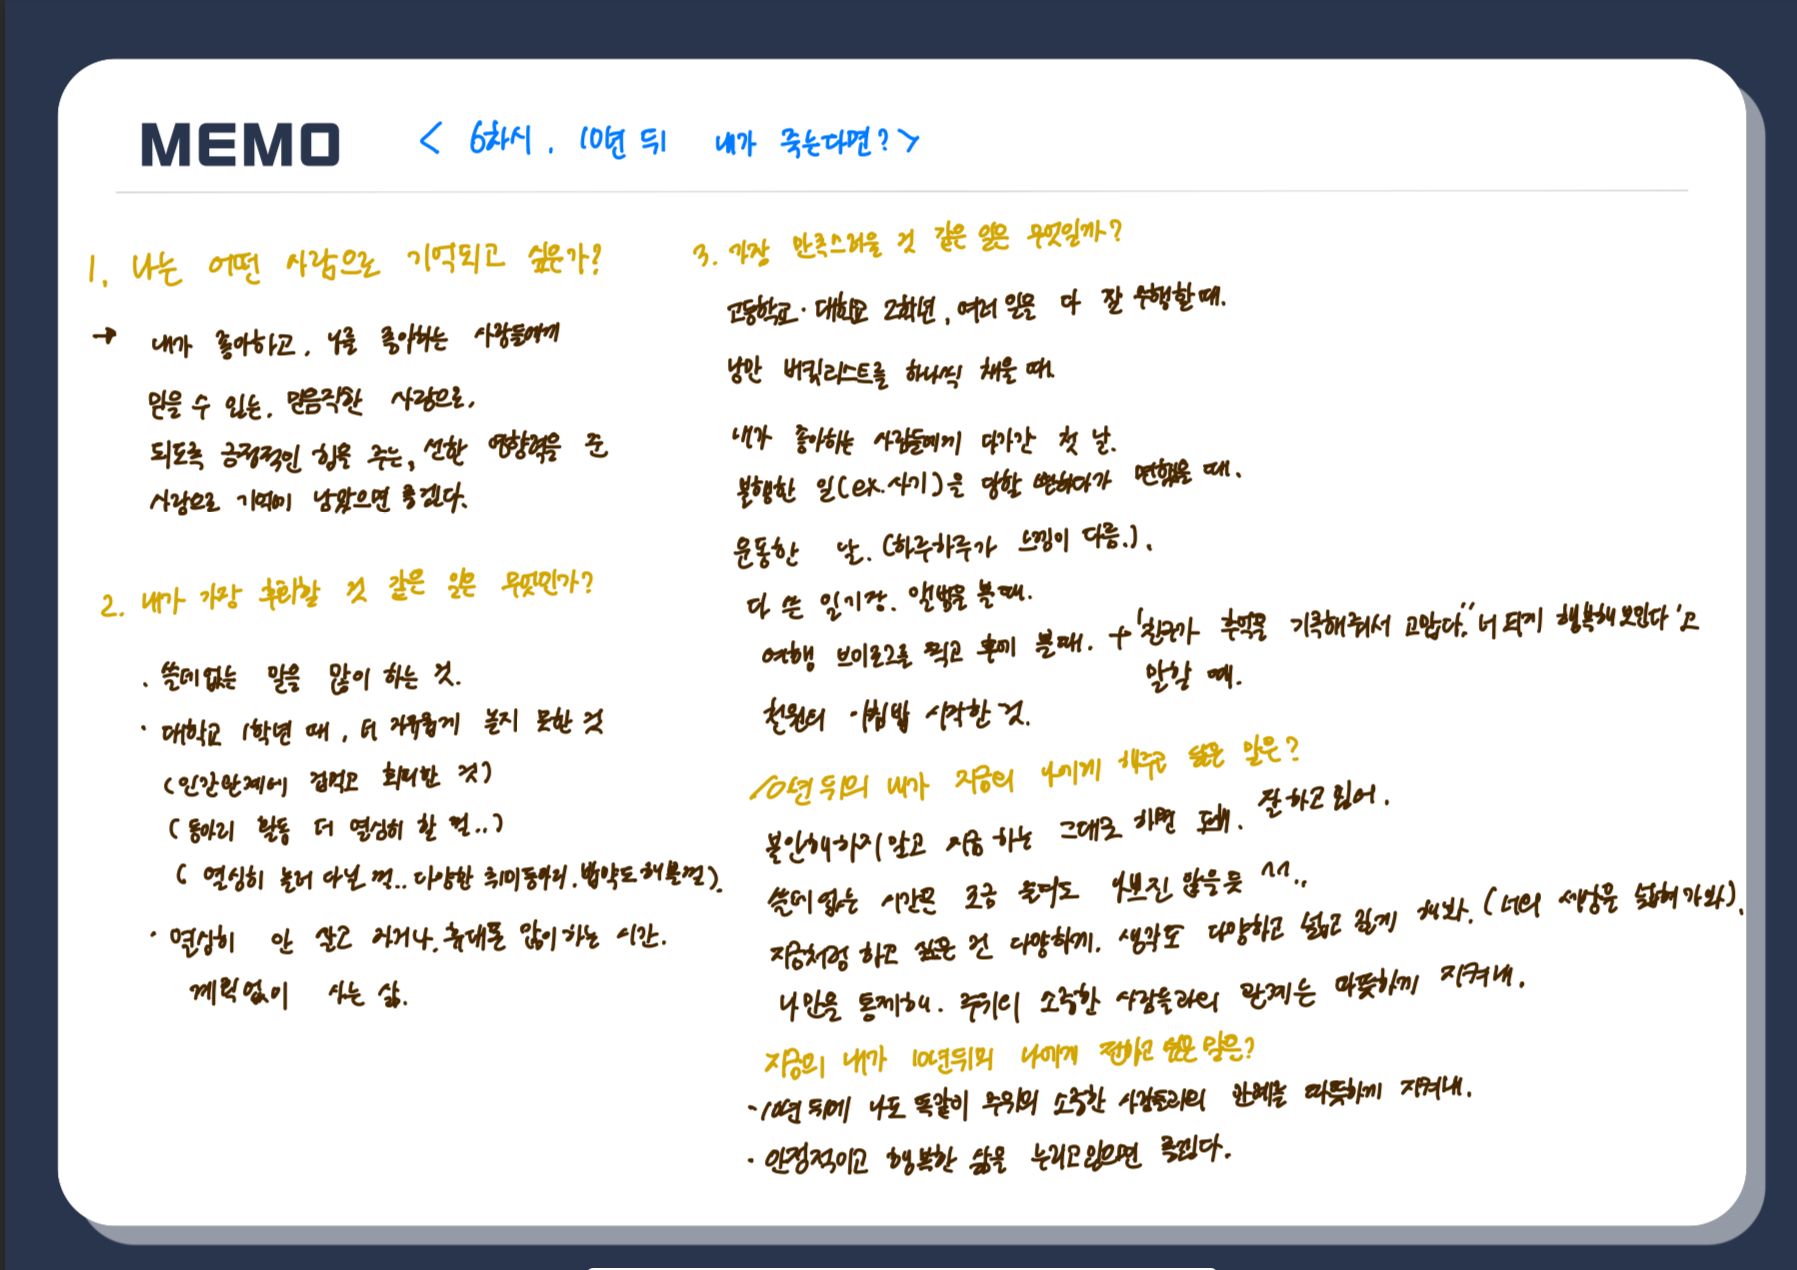 MEMO < 6차시. 10년 뒤 내가 죽는다면? >
1. 나는 어떤 사람으로 기억되고 싶은가?
→ 내가 좋아하고, 나를 좋아하는 사람들에게
믿을 수 있는, 믿음직한 사람으로,
되도록 긍정적인 힘을 주는, 선한 영향력을 준
사람으로 기억에 남았으면 좋겠다.
2. 내가 가장 후회할 것 같은 일은 무엇인가?
· 쓸데없는 말을 많이 하는 것.
· 대학교 1학년 때, 더 자유롭게 놀지 못한 것
(인간관계에 겁먹고 회피한 것)
(동아리 활동 더 열심히 할 껄..)
( 열심히 놀러 다닐 껄.. 다양한 취미동아리. 밥약도 해볼껄).
· 열심히 안 살고 자거나, 휴대폰 많이 하는 시간.
계획없이 사는 삶.
3. 가장 만족스러울 것 같은 일은 무엇일까?
고등학교·대학교 2학년, 여러 일을 다 잘 수행할 때.
낭만 버킷리스트를 하나씩 채울 때.
내가 좋아하는 사람들에게 다가간 첫 날.
불행한 일(ex.사기)을 당할 뻔하다가 면했을 때.
운동한 날. (하루하루가 느낌이 다름.).
다 쓴 일기장. 앨범을 볼때.
여행 브이로그를 찍고 후에 볼때. + '친구가 추억을 기록해줘서 고맙다.' '너 되게 행복해보인다'고
말할 때.
천원의 아침밥 시작한 것.
10년 뒤의 내가 지금의 나에게 해주고 싶은 말은?
불안해하지 말고 지금 하는 그대로 하면 돼. 잘하고 있어.
쓸데없는 시간은 조금 줄여도 나쁘진 않을듯 ^^..
지금처럼 하고 싶은 건 다양하게. 생각도 다양하고 넓고 깊게 해봐. (너의 세상을 넓혀가봐).
나만을 통제해. 주위의 소중한 사람들과의 관계는 따뜻하게 지켜내.
지금의 내가 10년뒤의 나에게 전하고 싶은 말은?
- 10년 뒤에 나도 똑같이 주위의 소중한 사람들과의 관계를 따뜻하게 지켜내.
· 안정적이고 행복한 삶을 누리고있으면 좋겠다.